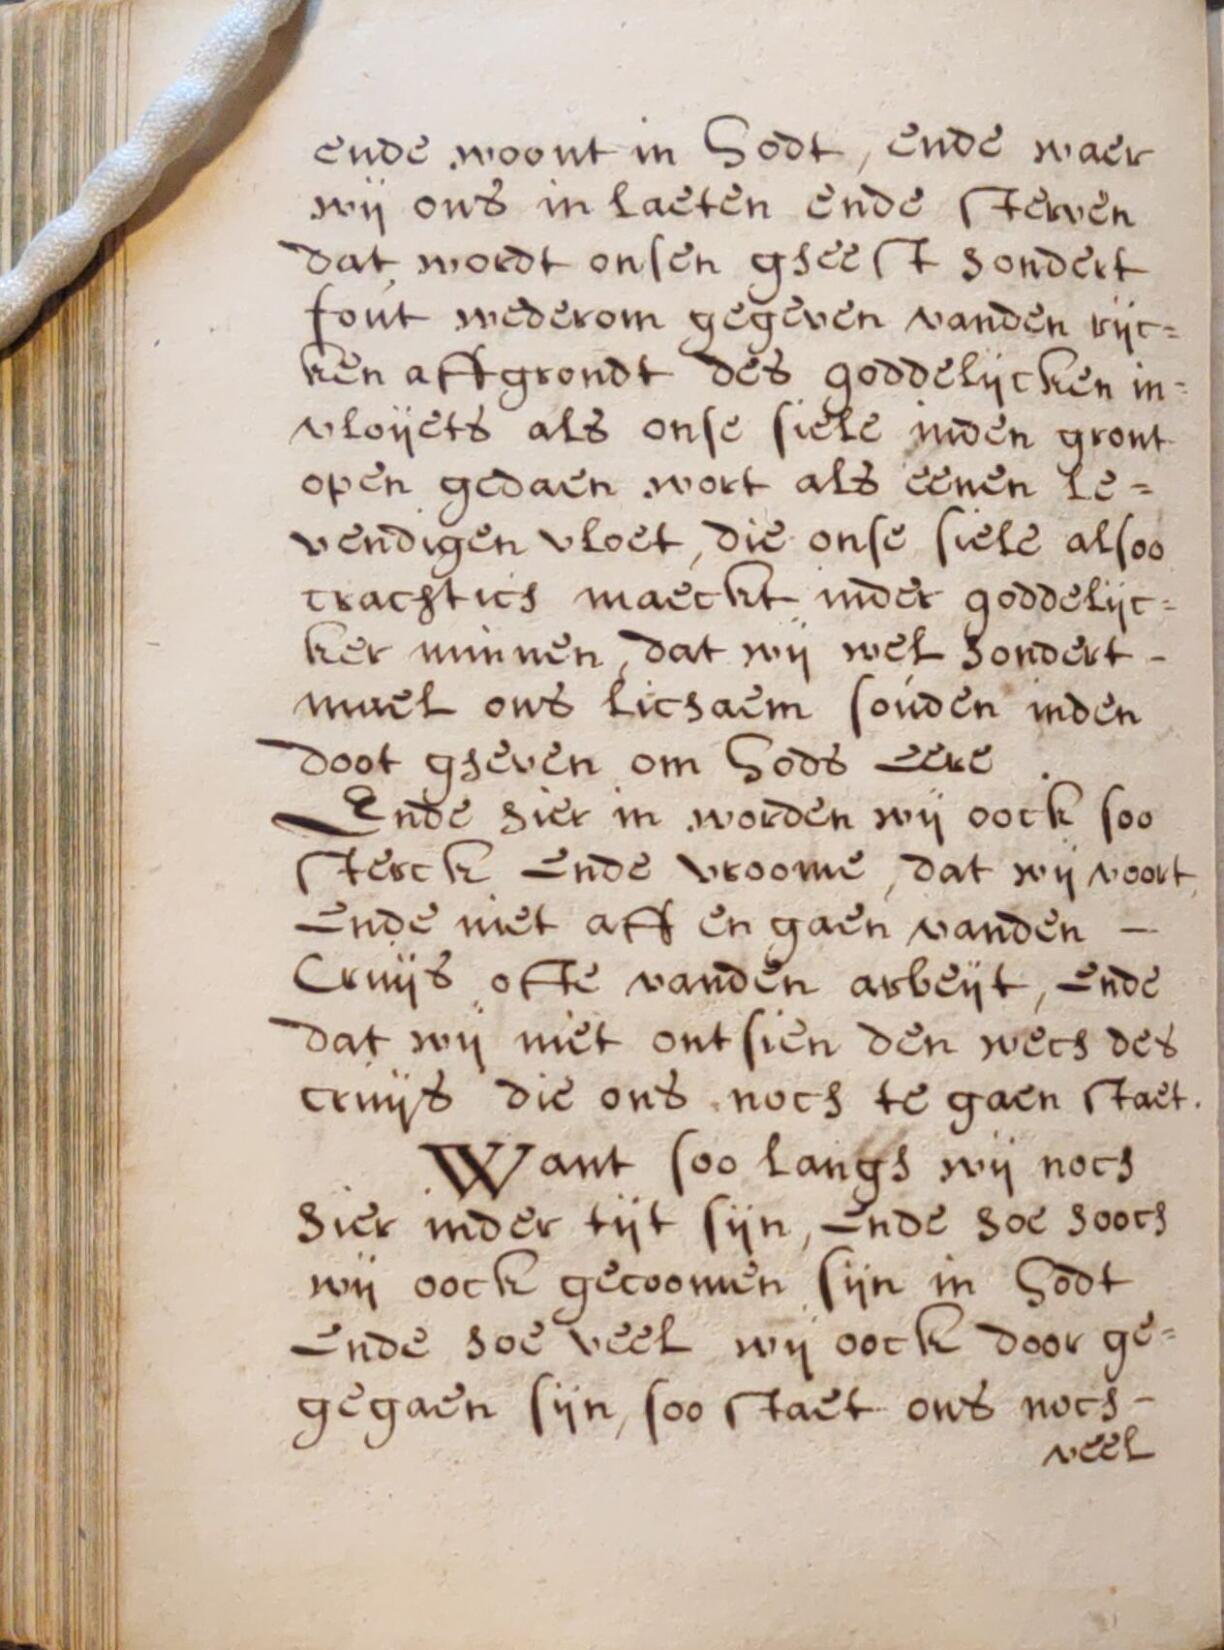 ende woont in Godt, ende waer
wij ons in laeten ende sterven
dat wordt onsen gheest hondert
fout wederom gegeven vanden rijc=
ken affgrondt des goddelijcken in=
vloijets als onse siele inden gront
open gedaen wort als eenen le=
vendigen vloet, die onse siele alsoo
crachtich maeckt inder goddelijc=
ker minnen, dat wij wel hondert -
mael ons lichaem souden inden
doot gheven om Gods Eere
Ende hier in worden wij oock soo
sterck Ende vroome, dat wij voort,
Ende niet aff en gaen vanden —
Cruijs ofte vanden arbeijt, Ende
dat wij niet ontsien den wech des
cruijs die ons noch te gaen staet.
Want soo langh wij noch
hier inder tijt sijn, Ende hoe hooch
wij oock gecoomen sijn in Godt
Ende hoe veel wij oock door ge=
gegaen sijn, soo staet ons noch -
veel